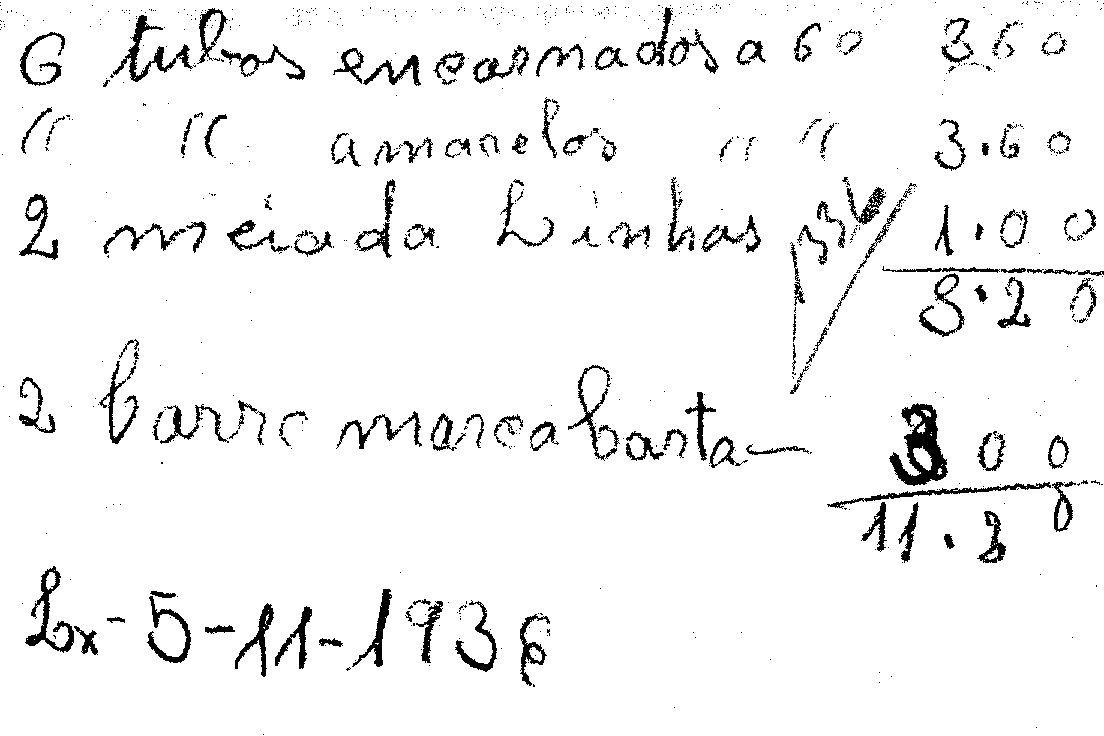 6 tubos encarnados a 60 3 60
" " amarelos " " 3.60
2 meiada Linhas 1.00
8.20
2 barre marca basta— 3 00
11.20
Lx-5-11-1936